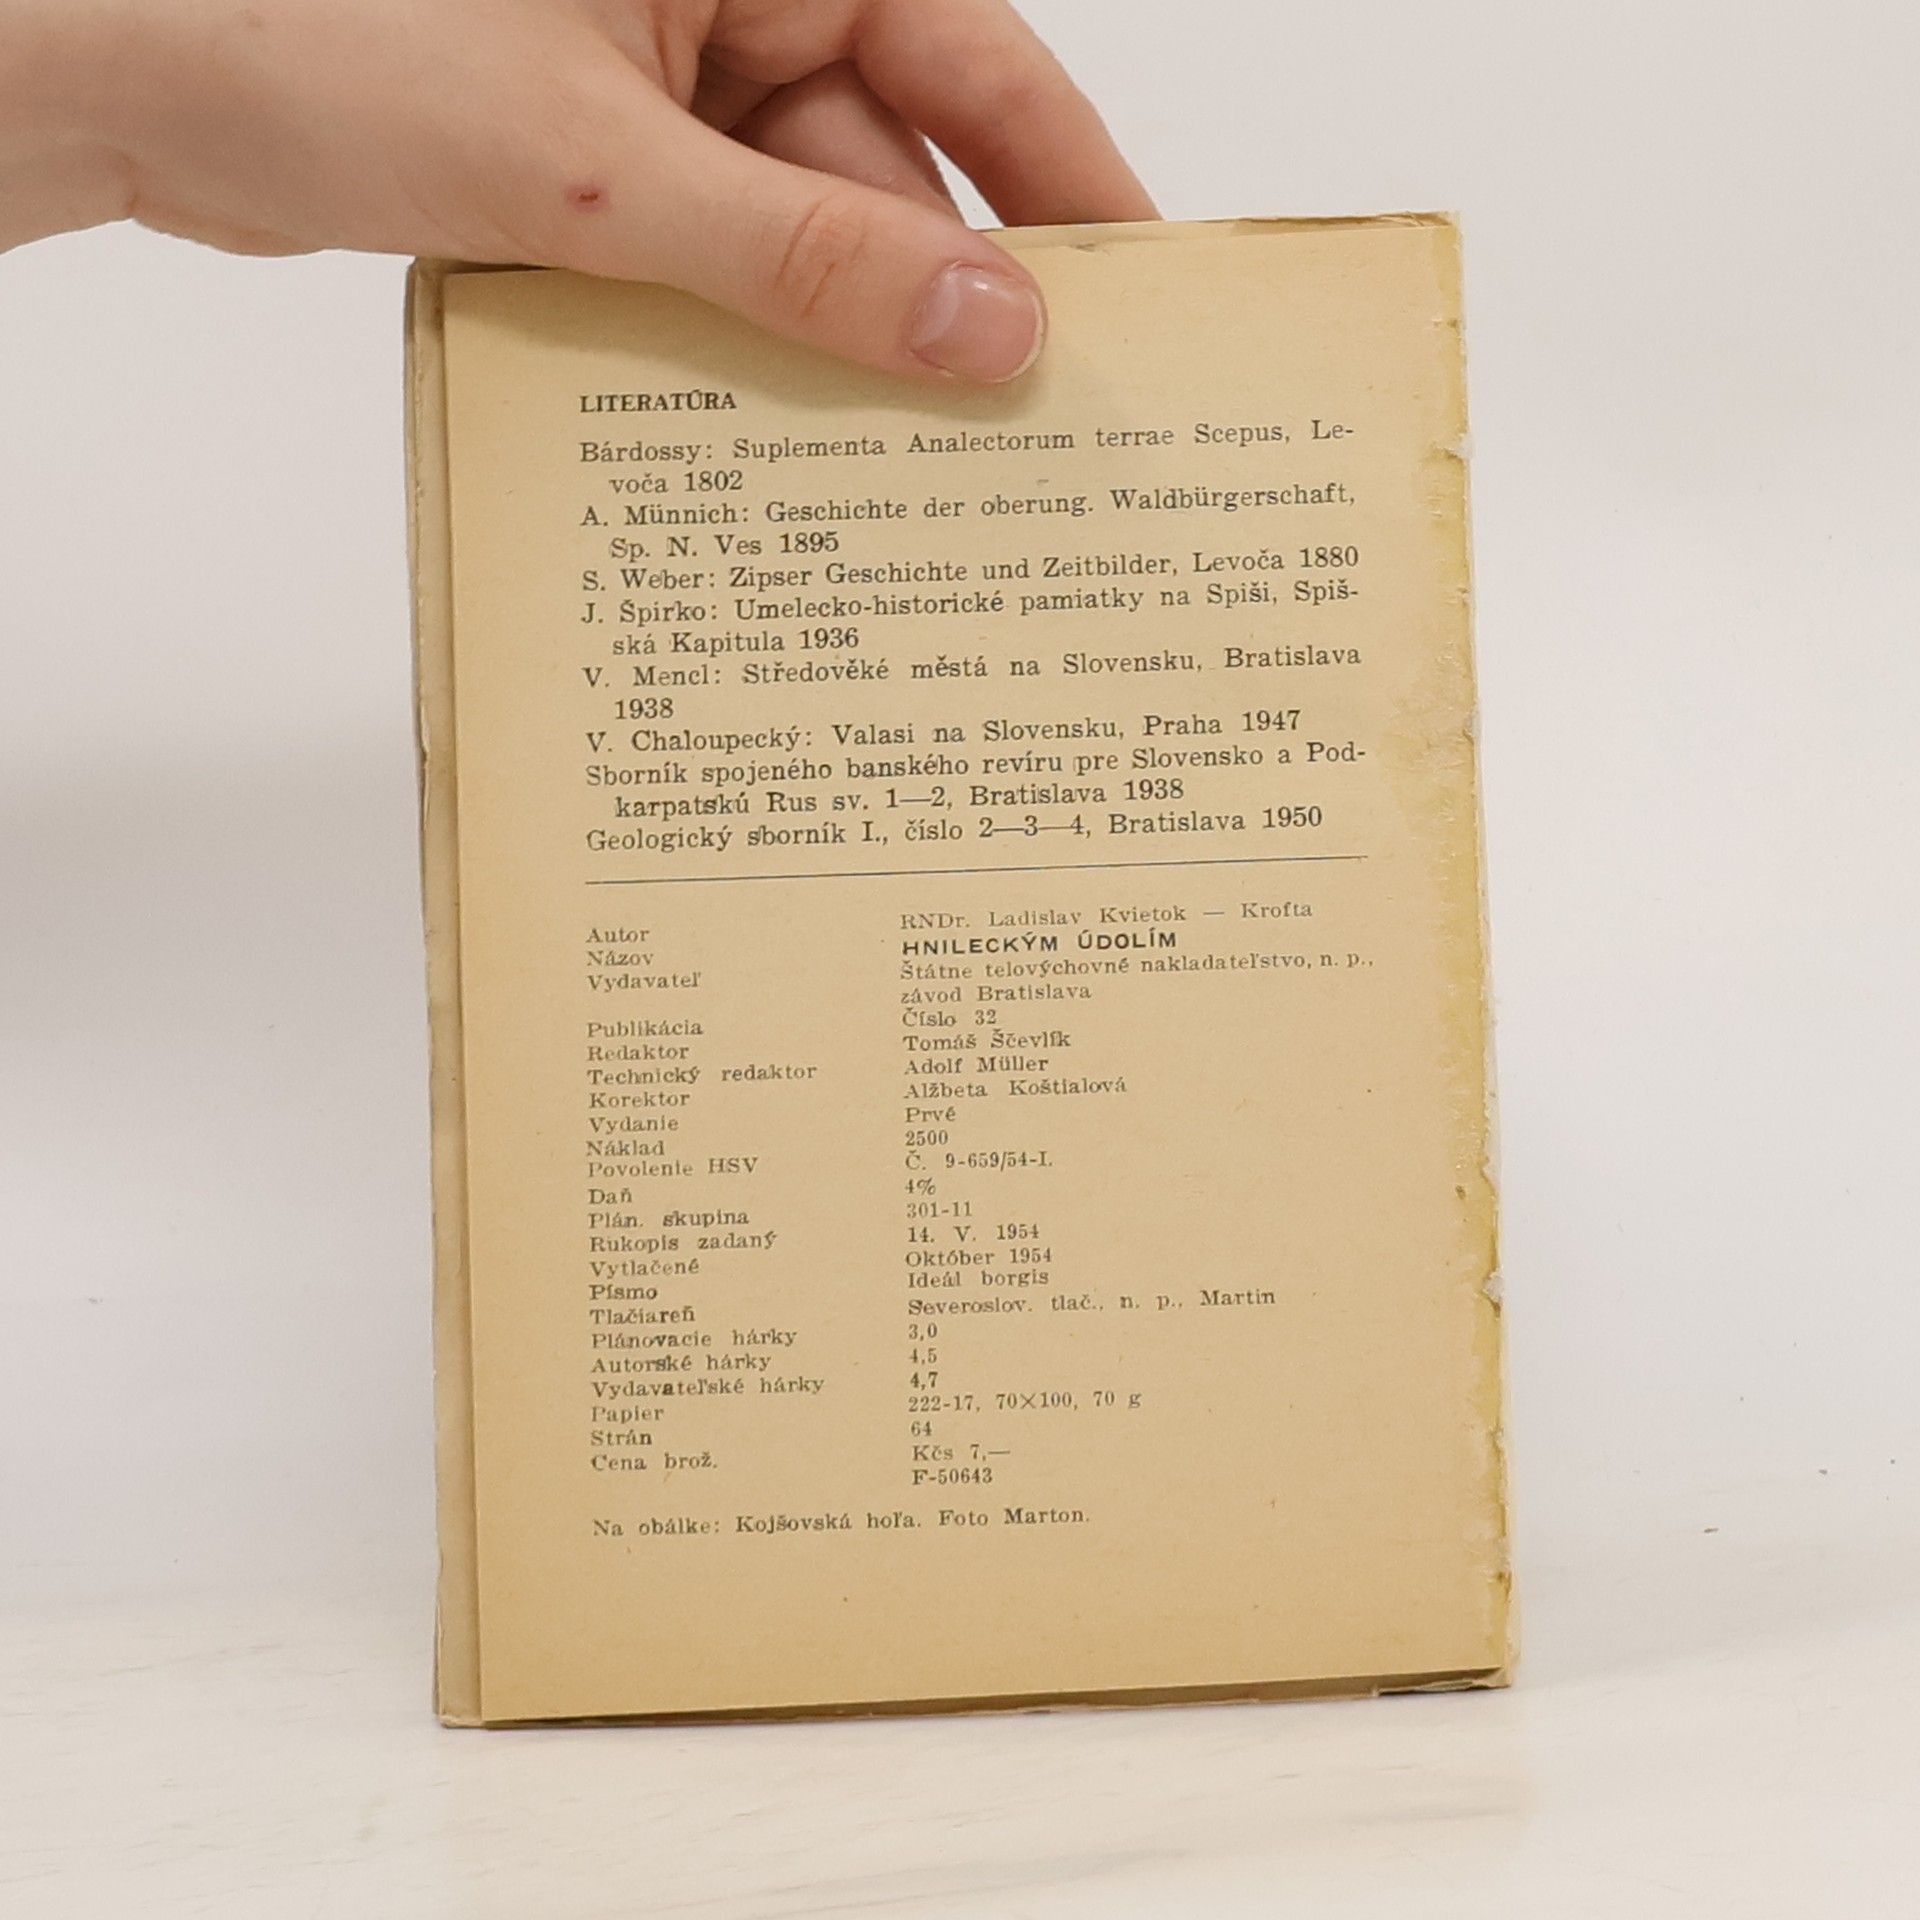 LITERATÚRA
Bárdossy: Suplementa Analectorum terrae Scepus, Le-
voča 1802
A. Münnich: Geschichte der oberung. Waldbürgerschaft,
Sp. N. Ves 1895
S. Weber: Zipser Geschichte und Zeitbilder, Levoča 1880
J. Špirko: Umelecko-historické pamiatky na Spiši, Spiš-
ská Kapitula 1936
V. Mencl: Středověké městá na Slovensku, Bratislava
1938
V. Chaloupecký: Valasi na Slovensku, Praha 1947
Sborník spojeného banského revíru pre Slovensko a Pod-
karpatskú Rus sv. 1—2, Bratislava 1938
Geologický sborník I., číslo 2—3—4, Bratislava 1950
Autor RNDr. Ladislav Kvietok — Krofta
Názov HNILECKÝM ÚDOLÍM
Vydavateľ Štátne telovýchovné nakladateľstvo, n. p.,
závod Bratislava
Publikácia Číslo 32
Redaktor Tomáš Ščevlík
Technický redaktor Adolf Müller
Korektor Alžbeta Koštialová
Vydanie Prvé
Náklad 2500
Povolenie HSV Č. 9-659/54-I.
Daň 4%
Plán. skupina 301-11
Rukopis zadaný 14. V. 1954
Vytlačené Október 1954
Písmo Ideál borgis
Tlačiareň Severoslov. tlač., n. p., Martin
Plánovacie hárky 3,0
Autorské hárky 4,5
Vydavateľské hárky 4,7
Papier 222-17, 70×100, 70 g
Strán 64
Cena brož. Kčs 7,—
F-50643
Na obálke: Kojšovská hoľa. Foto Marton.